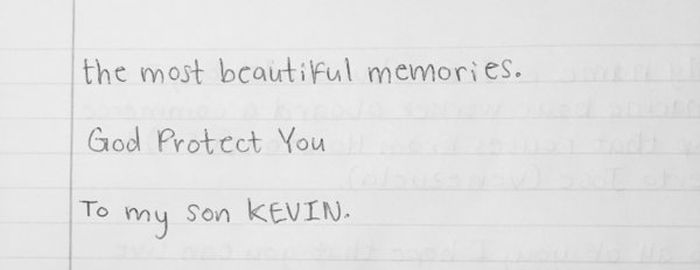 the most beautiful memories.
God Protect You
To my son KEVIN.